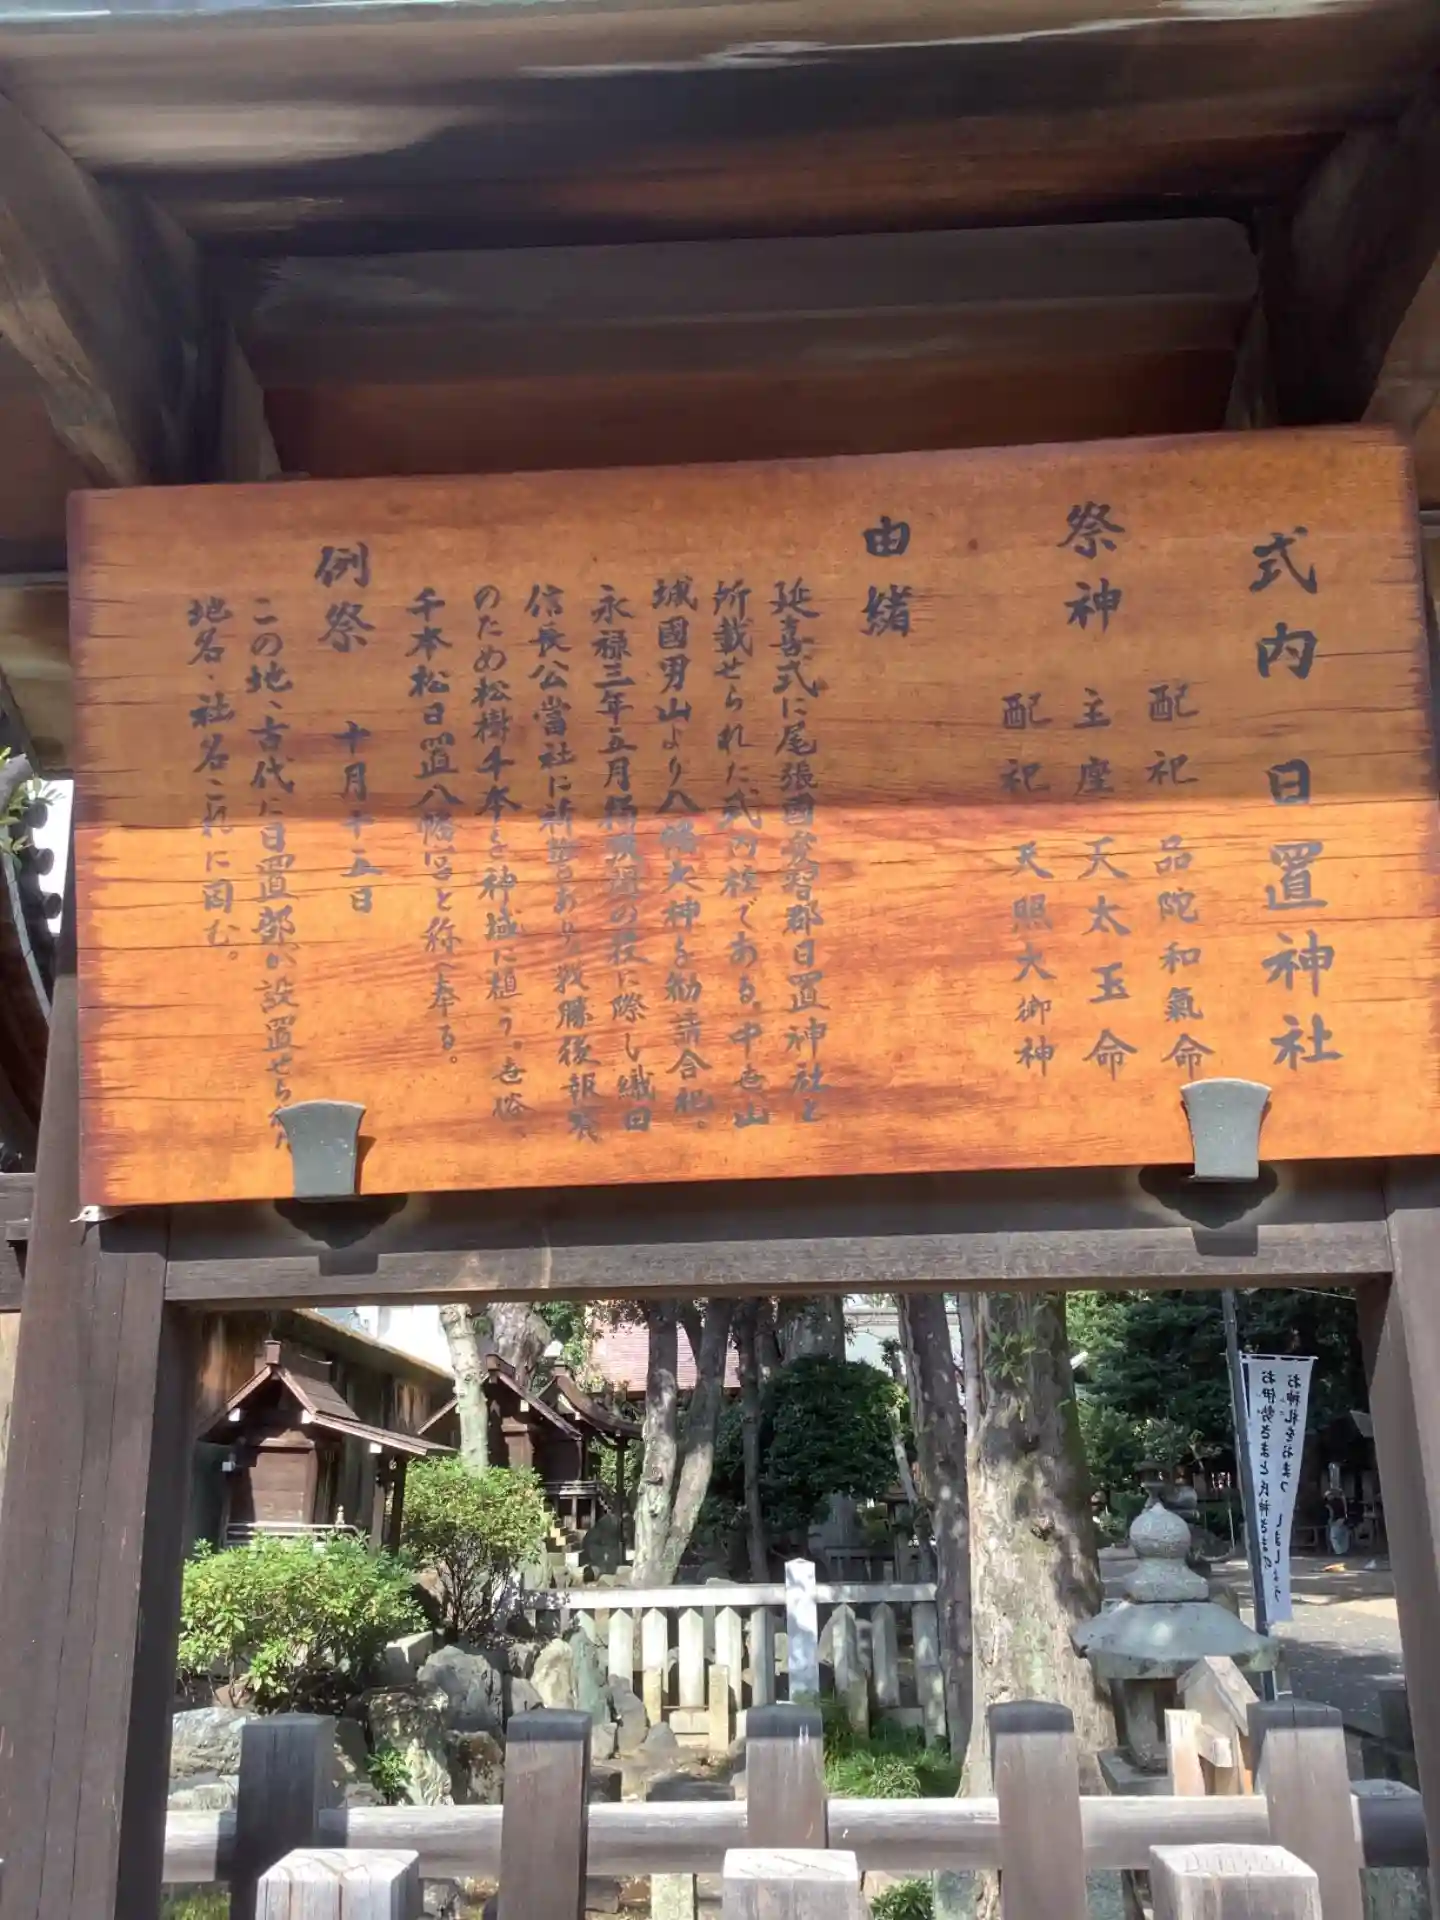 式内日置神社
祭神
配祀 品陀和氣命
主座 天太玉命
配祀 天照大御神
由緒
延喜式に尾張國愛智郡日置神社と
所載せられた式内社である。中世山
城國男山より八幡大神を勧請合祀。
永禄三年五月桶狭間の役に際し織田
信長公當社に祈誓あり、戦勝後報賽
のため松樹千本を神域に植う。世俗、
千本松日置八幡宮と称へ奉る。
例祭 十月十五日
この地、古代に日置部が設置せられ
地名・社名これに因む。
お神札をおまつりしましょう
お伊勢さまと氏神さまの